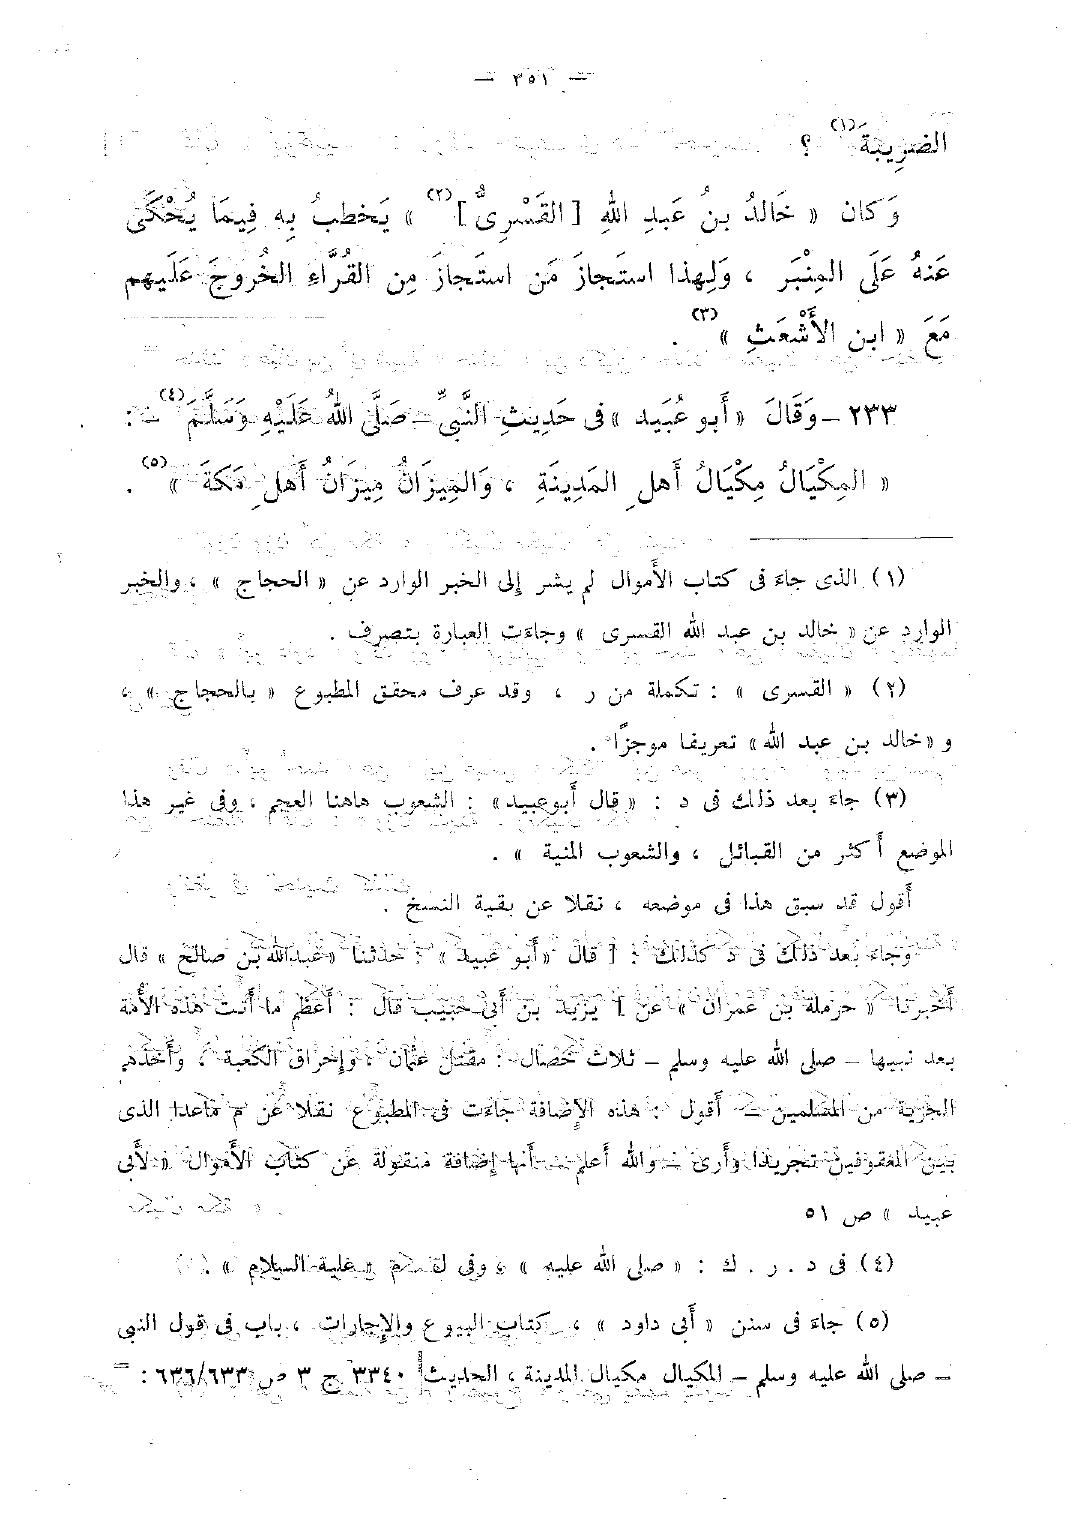 — ٣٥١ —
الضرِيبَةَ (١) ؟
وَكان « خَالدُ بنُ عَبدِ اللهِ [ القَسْرِىُّ ] (٢) » يَخطبُ بِه فِيمَا يُحْكَى
عَنهُ عَلَى المِنْبَر ، وَلِهذا استَجازَ مَن استَجازَ مِن القُرَّاءِ الخُروجَ عَلَيهم
مَعَ « ابن الأَشْعَثِ » (٣) .
٢٣٣ – وَقَالَ « أَبو عُبَيد » فى حَدِيثِ النَّبىِّ – صَلَّى اللهُ عَلَيْهِ وَسَلَّمَ (٤) – :
« المِكْيَالُ مِكْيَالُ أَهلِ المَدِينَةِ ، وَالمِيزَانُ مِيزَانُ أَهلِ مَكةَ » (٥) .
(١) الذى جاءَ فى كتاب الأَموال لم يشر إلى الخبر الوارد عن « الحجاج » ، والخبر
الوارد عن « خالد بن عبد الله القسرى » وجاءت العبارة بتصرف .
(٢) « القسرى » : تكملة من ر ، وقد عرف محقق المطبوع « بالحجاج » ،
و « خالد بن عبد الله » تعريفا موجزًا .
(٣) جاءَ بعد ذلك فى د : « قال أَبوعبيد » : الشعوب هاهنا العجم ، وفى غير هذا
الموضع أكثر من القبائل ، والشعوب المنية » .
أَقول قد سبق هذا فى موضعه ، نقلا عن بقية النسخ .
وجاءَ بعد ذلك فى د كذلك : [ قال « أَبو عبيد » : حدثنا « عبدالله بن صالح » قال
أَخبرنا « حرملة بن عمران » عن ] يزيد بن أَبى حبيب قال : أَعظم ما أَتت هذه الأُمة
بعد نبيها – صلى الله عليه وسلم – ثلاث خصال : مقتل عثمان ، وإحراق الكعبة ، وأَخذهم
الجزية من المسلمين – أَقول : هذه الإِضافة جاءَت فى المطبوع نقلا عن م ماعدا الذى
بين المعقوفين تجريدا وأَرى – والله أَعلم – أَنها إضافة منقولة عن كتاب الأَموال « لأَبى
عبيد » ص ٥١
(٤) فى د . ر . ك : « صلى الله عليه » ، وفى ل . م « عليه السلام » .
(٥) جاءَ فى سنن « أَبى داود » ، كتاب البيوع والإِجارات ، باب فى قول النبى
– صلى الله عليه وسلم – المكيال مكيال المدينة ، الحديث ٣٣٤٠ ج ٣ ص ٦٣٣/٦٣٦ : =